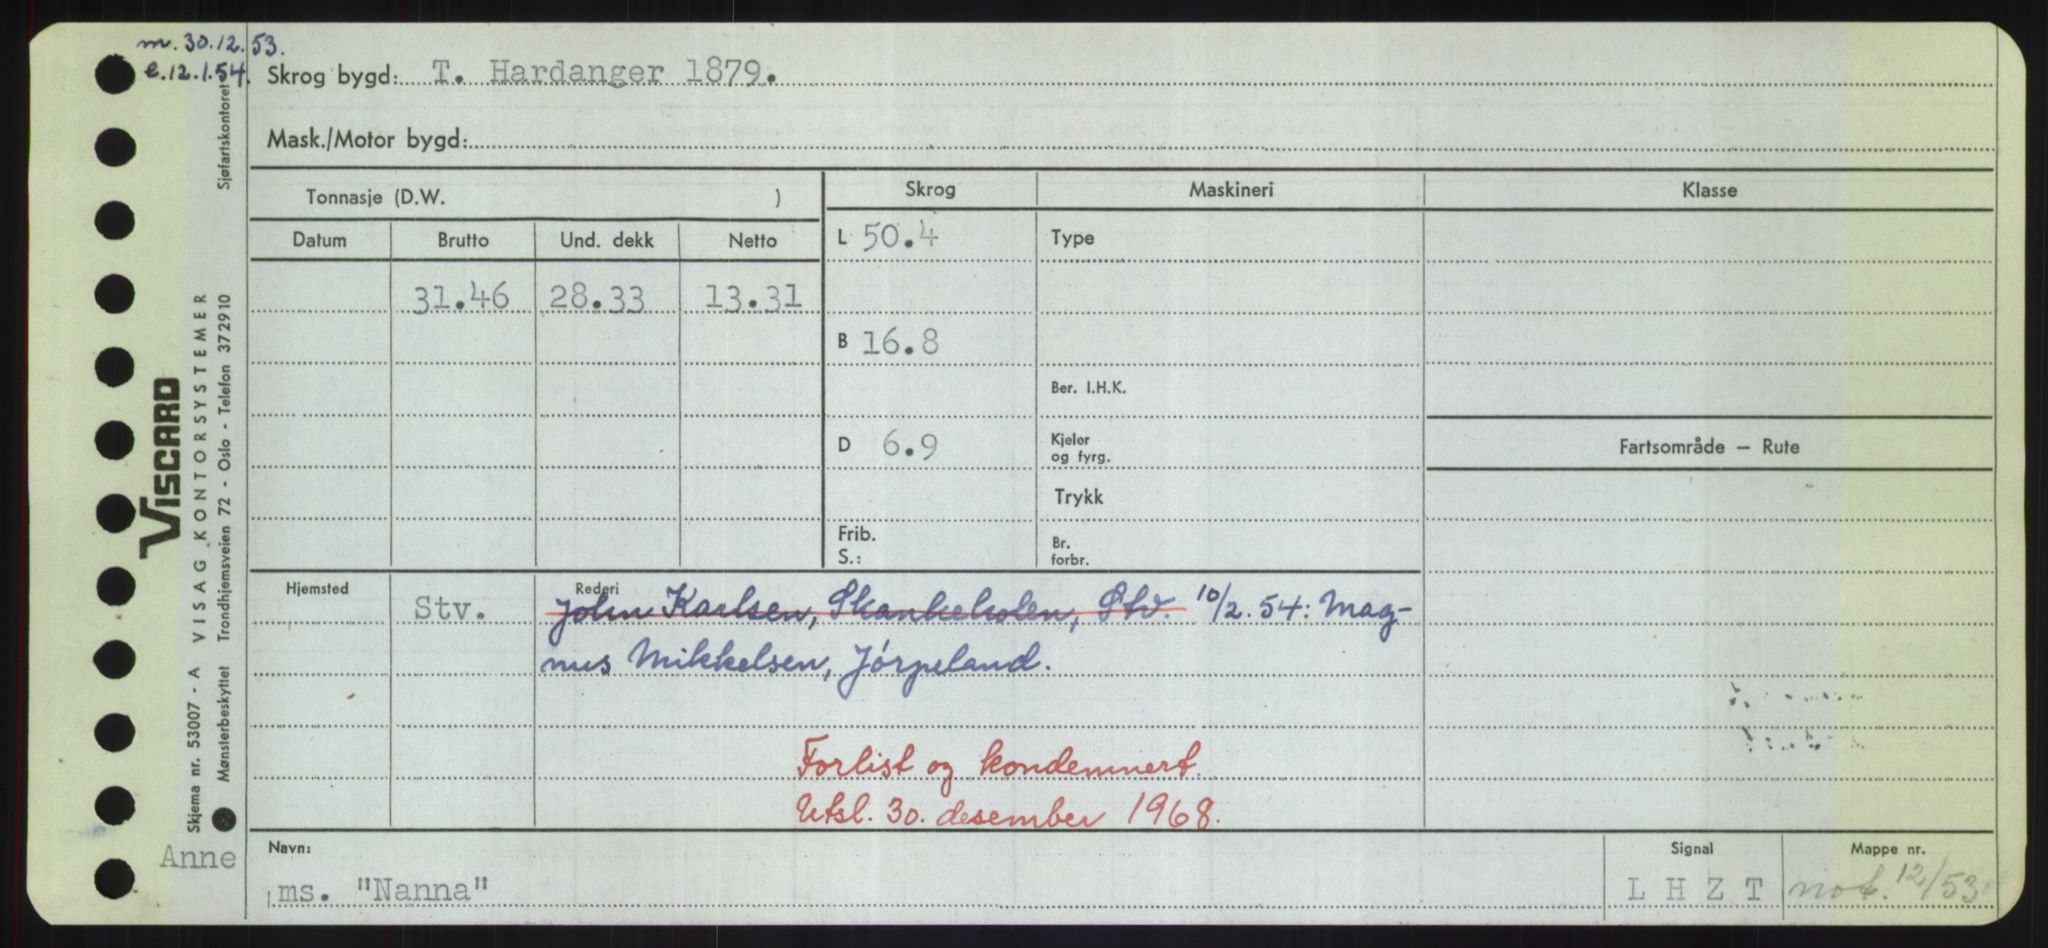 m. 30.12.53.
e.12.1.54.
Skrog bygd: T. Hardanger 1879.
Mask./Motor bygd:
Tonnasje (D.W. )
Skrog
Maskineri
Klasse
Datum
Brutto
Und. dekk
Netto
L 50.4
Type
31.46
28.33
13.31
B 16.8
Ber. I.H.K.
D 6.9
Kjeler
og fyrg.
Fartsområde — Rute
Trykk
Frib.
S.:
Br.
forbr.
Hjemsted
Stv.
Rederi
John Karlsen, Skankeholen, Stv. 10/2.54: Mag-
nus Mikkelsen, Jørpeland.
Forlist og kondemnert.
Utsl. 30. desember 1968.
Navn:
ms. "Nanna"
Signal
L H Z T
Mappe nr.
not. 12/53
Anne
VISCARD
VISAG KONTORSYSTEMER
Skjema nr. 53007 - A
Mønsterbeskyttet Trondhjemsveien 72 - Oslo - Telefon 372910
Sjøfartskontoret